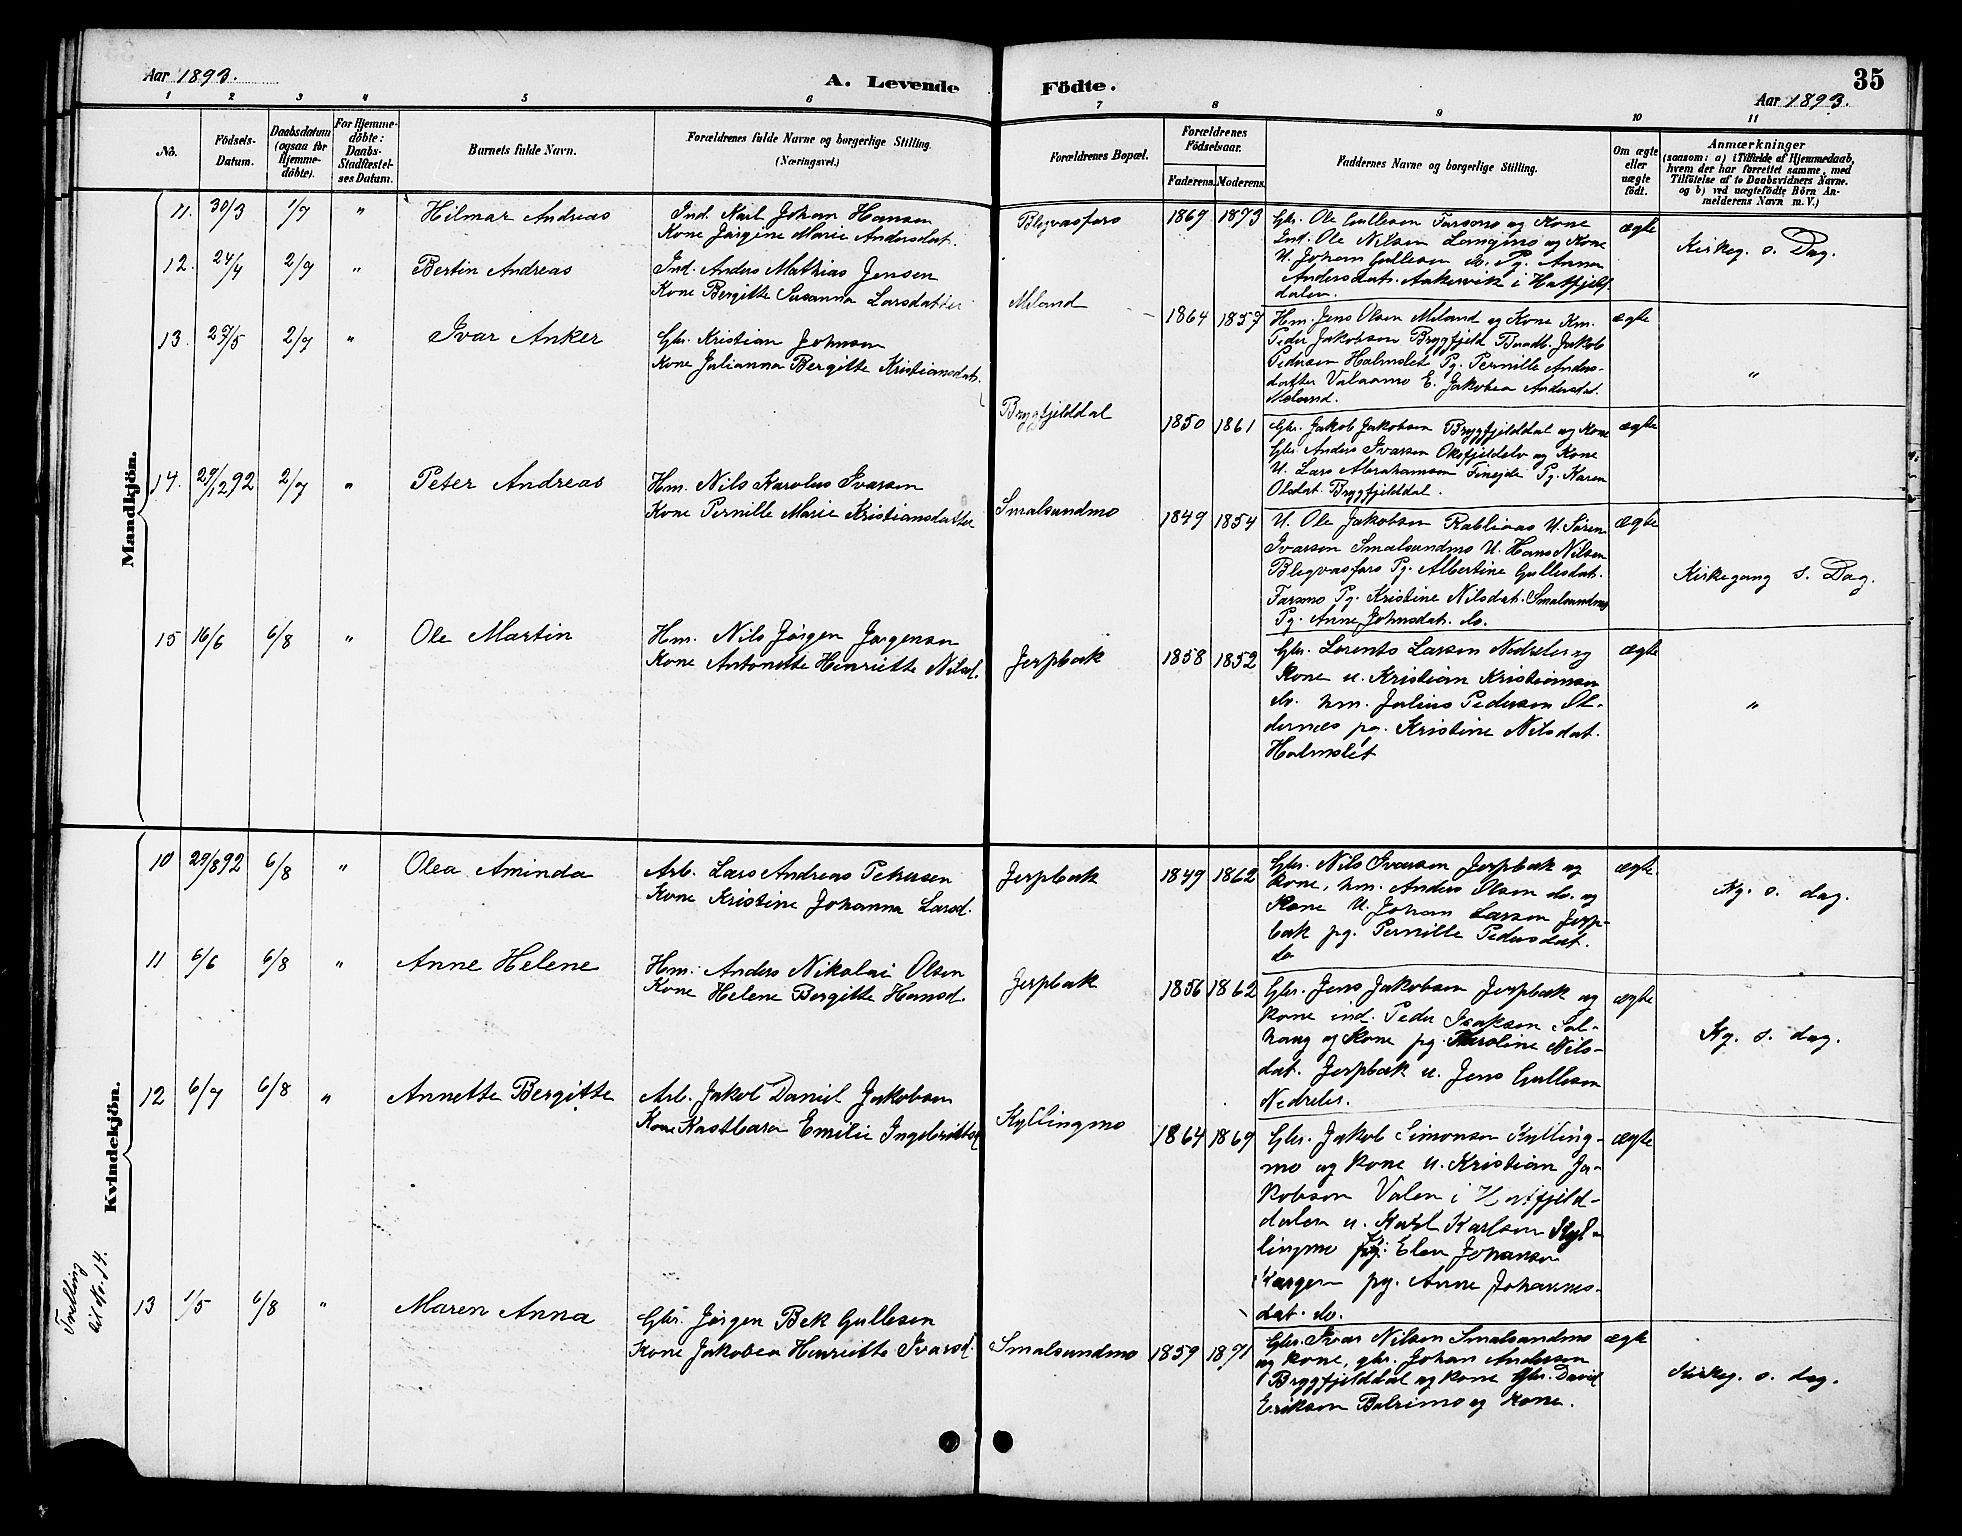 Aar 1893.
A. Levende
Födte.
35
Aar 1893.
1 2 3 4 5 6 7 8 9 10 11
No.
Födsels-
Datum.
Daabsdatum
(ogsaa for
Hjemme-
döbte).
For Hjemme-
döbte:
Daabs-
Stadfæstel-
ses Datum.
Barnets fulde Navn.
Forældrenes fulde Navne og borgerlige Stilling.
(Næringsvei.)
Forældrenes Bopæl.
Forældrenes
Födselsaar.
Faderens. Moderens.
Faddernes Navne og borgerlige Stilling.
Om ægte
eller
uægte
født.
Anmærkninger
(saasom: a) i Tilfælde af Hjemmedaab,
hvem der har forrettet samme, med
Tilføielse af to Daabsvidners Navne.
og b) ved uægtefødte Börn An-
melderens Navn m. V.)
Mandkjön.
11. 30/3 1/7 " Hilmar Andreas
Ind. Karl Johan Hansen
Kone Jørgine Marie Andersdat.
Blegvasfors 1869 1873
Gbr. Ole Gullesen Farsmo og Kone
Ind. Ole Nilsen og Kone
U. Johan Gullesen do. Pg. Anna
Andersdat. Aakervik i Hatfjeld
dalen.
ægte
Kirkeg. s. Dag.
12. 24/4 2/7 " Bertin Andreas
Ind. Anders Mathias Jensen
Kone Bergitte Susanna Larsdatter
Meland 1864 1857
Hm. Jens Olsen Meland og Kone Km.
Peder Jakobsen Bryggfjeld Baadb. Jakob
Pedersen Halmslet Pg. Pernille Anders-
datter E. Jakobea Andersdat.
Meland.
ægte
"
13. 29/5 2/7 " Ivar Anker
Gbr. Kristian Johnsen
Kone Julianna Bergitte Kristiansdat.
Bryggfjelddal 1850 1861
Gbr. Jakob Jakobsen Bryggfjelddal og Kone
Gbr. Anders Ivarsen Oksfjeldelv og Kone
U. Lars Abrahamsen Finejde Pg. Karen
Olsdat. Bryggfjelddal.
ægte
14. 29/12 92 2/7 " Peter Andreas
Hm. Nils Karolus Ivarsen
Kone Pernille Marie Kristiansdatter
Smalsundmo 1849 1854
U. Ole Jakobsen U. Sören
Ivarsen Smalsundmo U. Hans Nilsen
Blegvasfors Pg. Albertine Gullesdat.
Farsmo Pg. Kristine Nilsdat. Smalsundmo
Pg. Anne Johnsdat. do.
ægte
Kirkegang s. Dag.
15 16/6 6/8 " Ole Martin
Hm. Nils Jørgen Jørgensen
Kone Antonette Henriette Nilsd.
Jerpbak 1858 1852
Gbr. Lorents Larsen Nedreler og
Kone u. Kristian Kristiansen
do. hm. Julius Pedersen Ol-
dernes pg. Kristine Nilsdat.
Halmslet
ægte
"
Kvindekjön.
10 29/8 92 6/8 " Olea Aminda
Arb. Lars Andreas Petersen
Kone Kristine Johanna Larsd.
Jerpbak 1849 1862
Gbr. Nils Ivarsen Jerpbak og
kone, hm. Anders Olsen do. og
Kone U. Johan Larsen Jerp-
bak pg. Pernille Pedersdat.
do
ægte.
Kg. s. dag.
11 6/6 6/8 " Anne Helene
Hm. Anders Nikolai Olsen
Kone Helene Bergitte Hansd.
Jerpbak 1856 1862
Gbr. Jens Jakobsen Jerpbak og
kone ind. Peder Isaksen Sol-
haug og Kone pg. Karoline Nils-
dat. Jerpbak u. Jens Gullesen
Nedreler.
ægte
Kg. s. dag.
12 6/7 6/8 " Annette Bergitte
Arb. Jakob Daniel Jakobsen
Kone Kastbara Emilie Ingebriktsd
Kyllingmo 1864 1869
Gbr. Jakob Simonsen Kylling-
mo og kone u. Kristian Ja-
kobsen Valen i Hatfjeld-
dalen u. Karl Karlsen Kyl-
lingmo Elen Johansen
pg. Anne Johannes-
dat. do.
ægte
13 1/5 6/8 " Maren Anna
Gbr. Jørgen Bek Gullesen
Kone Jakobea Henriette Ivarsd.
Smalsundmo 1859 1871
Gbr. Ivar Nilsen Smalsundmo
og kone, gbr. Johan Andersen
Bryggfjelddal og kone Gbr. David
Eriksen og Kone.
ægte
Kirkeg. s. dag.
Tvilling
til No. 14.